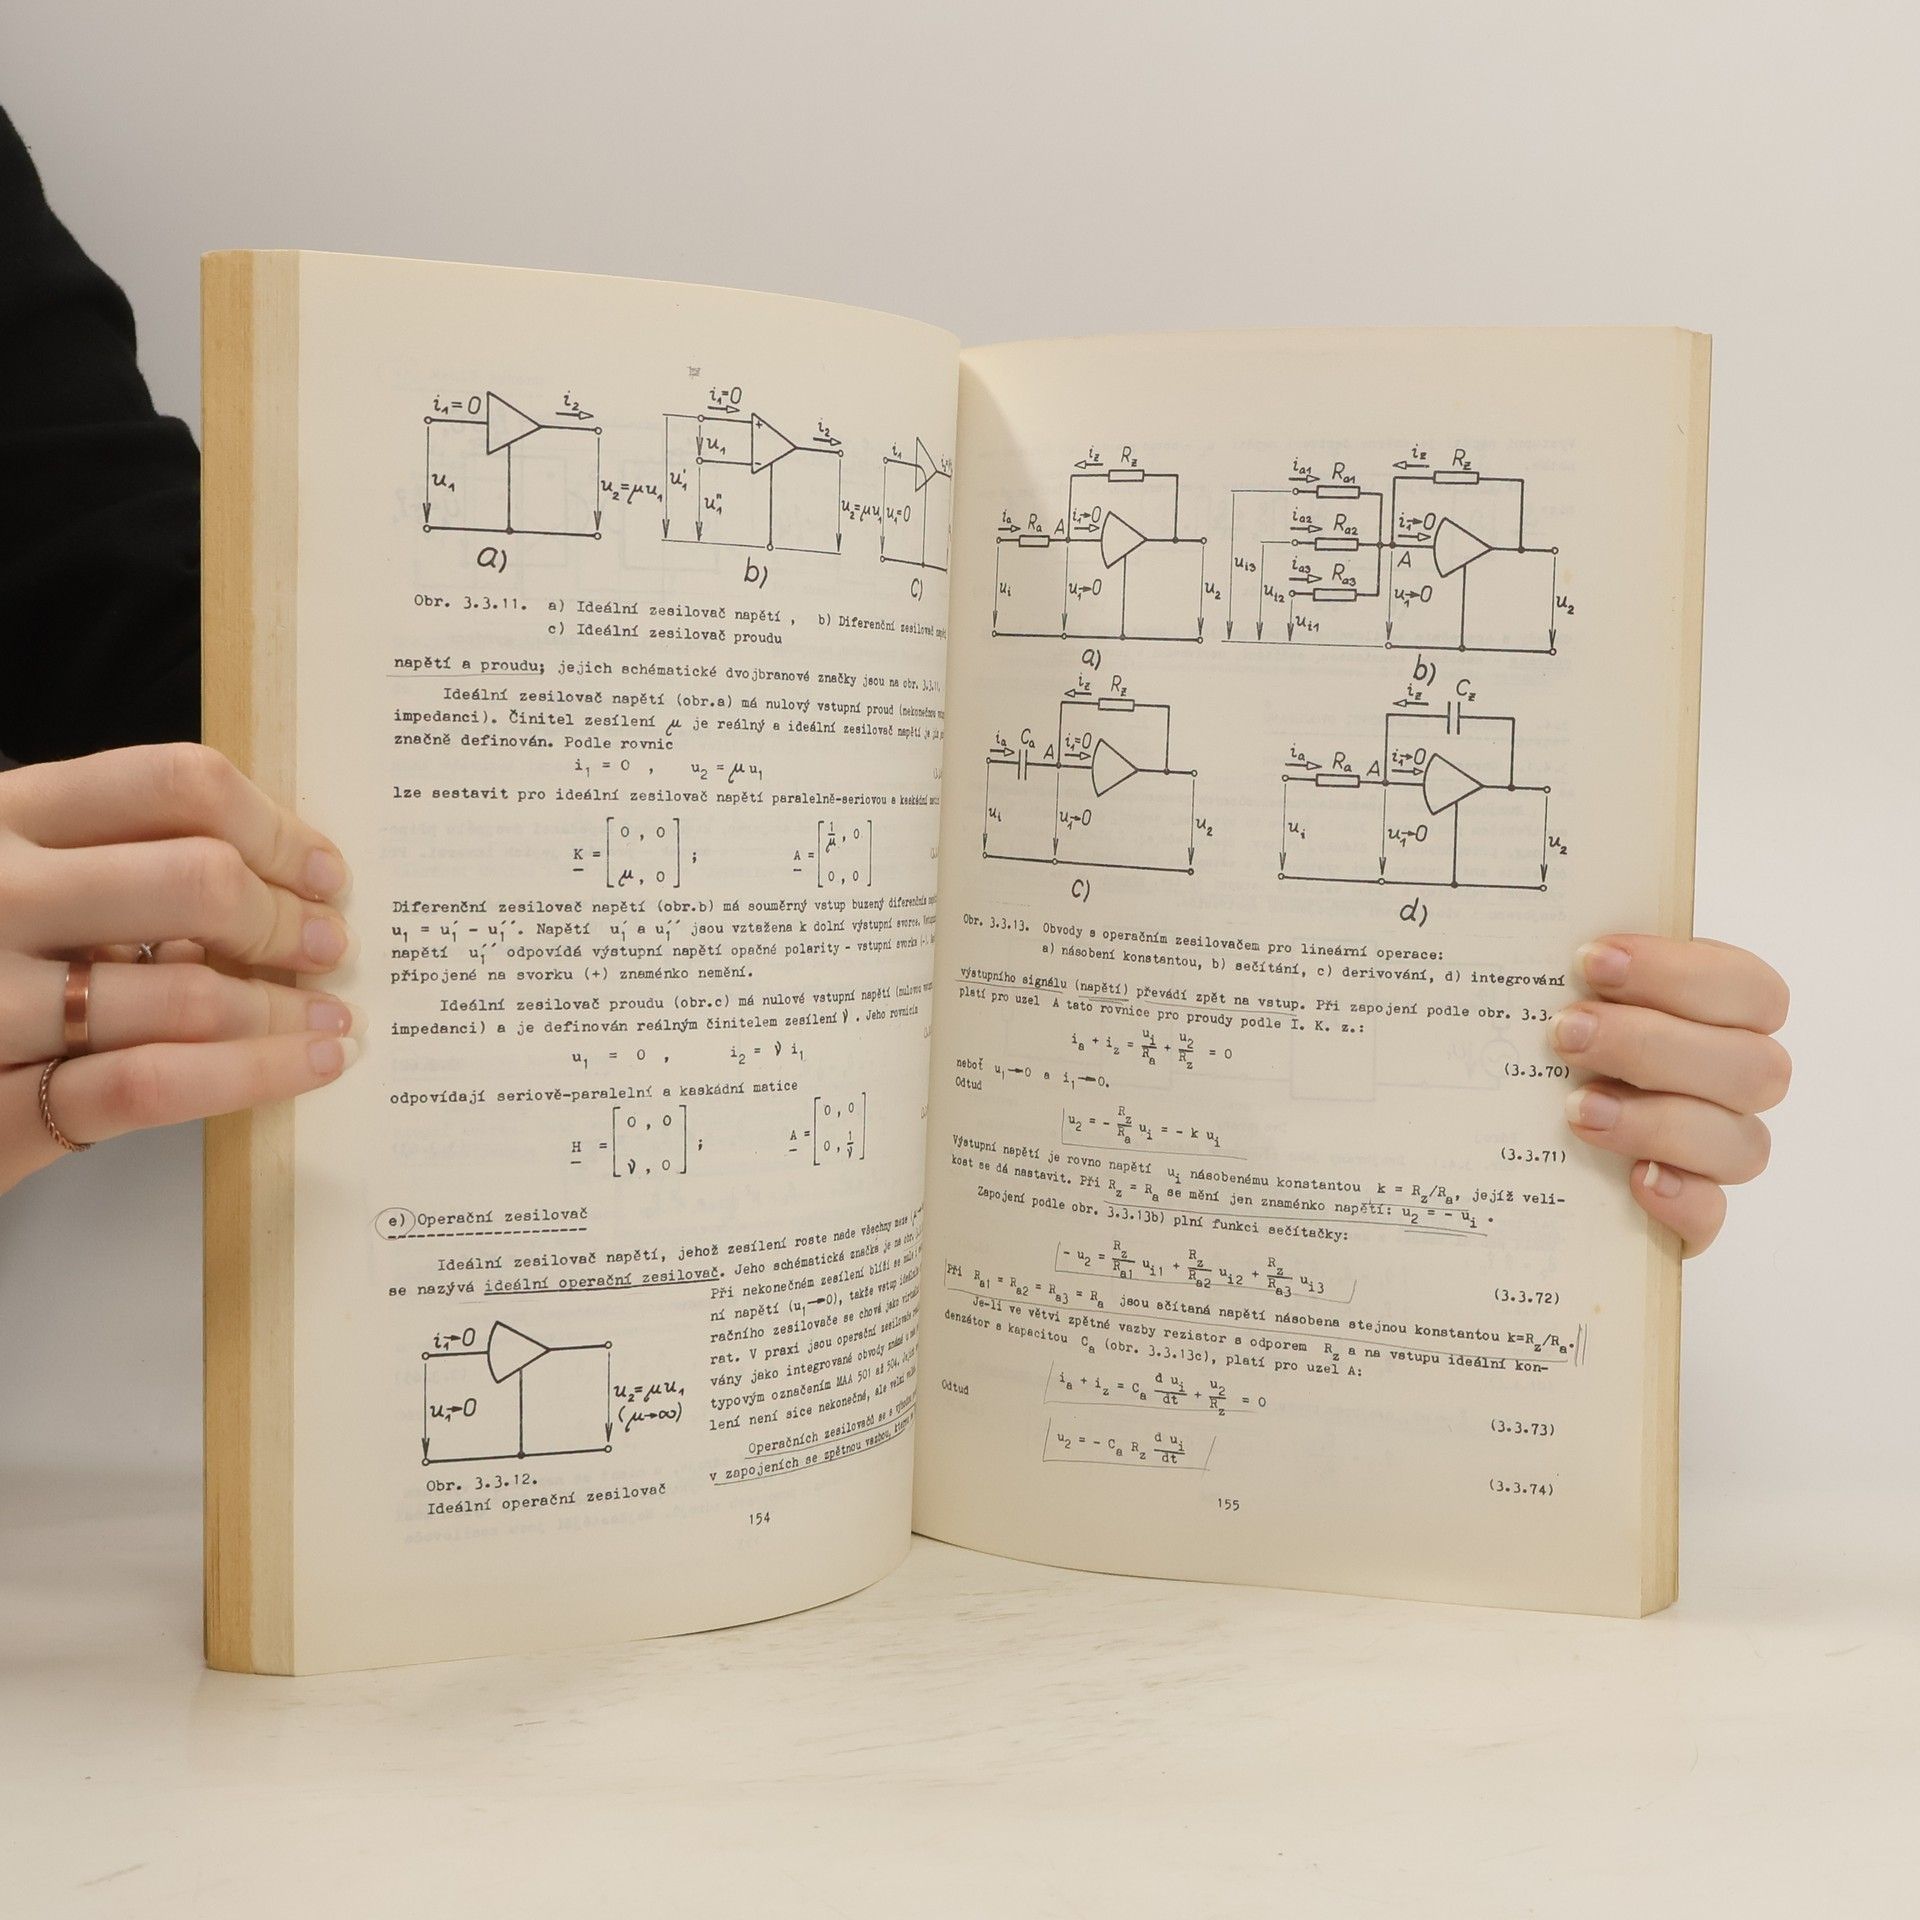 i₁=0 i₂
u₁ u₂=μu₁
a)
i₁=0 i₂
u₁ u₁′ u₁″ u₂=μu₁
b)
i₁
u₁=0
c)
Obr. 3.3.11. a) Ideální zesilovač napětí , b) Diferenční zesilovač
c) Ideální zesilovač proudu
napětí a proudu; jejich schématické dvojbranové značky jsou na obr. 3.3.11.
Ideální zesilovač napětí (obr.a) má nulový vstupní proud (nekonečnou
impedanci). Činitel zesílení μ je reálný a ideální zesilovač napětí je
značně definován. Podle rovnic
i₁ = 0 , u₂ = μu₁
lze sestavit pro ideální zesilovač napětí paralelně-seriovou a kaskádní
K = [0 , 0
μ , 0] ; A = [1/μ , 0
0 , 0]
Diferenční zesilovač napětí (obr.b) má souměrný vstup buzený diferenčním
u₁ = u₁′ - u₁″. Napětí u₁′ a u₁″ jsou vztažena k dolní výstupní svorce.
napětí u₁″ odpovídá výstupní napětí opačné polarity - vstupní svorka (-).
připojené na svorku (+) znaménko nemění.
Ideální zesilovač proudu (obr.c) má nulové vstupní napětí (nulovou
impedanci) a je definován reálným činitelem zesílení ν . Jeho rovnicím
u₁ = 0 , i₂ = ν i₁
odpovídají seriově-paralelní a kaskádní matice
H = [0 , 0
ν , 0] ; A = [0 , 0
0 , 1/ν]
e) Operační zesilovač
Ideální zesilovač napětí, jehož zesílení roste nade všechny meze
se nazývá ideální operační zesilovač. Jeho schématická značka je na obr.
Při nekonečném zesílení blíží se
ní napětí (u₁→0), takže vstup
račního zesilovače se chová jako
rat. V praxi jsou operační zesilovače
vány jako integrované obvody
typovým označením MAA 501 až 504.
lení není sice nekonečné, ale velmi
Operačních zesilovačů se s
v zapojeních se zpětnou vazbou,
i₁→0
u₁→0 u₂=μu₁
(μ→∞)
Obr. 3.3.12.
Ideální operační zesilovač
154
i_z R_z
i_a R_a A i₁→0
u_i u₁→0 u₂
a)
i_z R_z
i_a1 R_a1
i_a2 R_a2 i₁→0
A
i_a3 R_a3
u_i3 u_i2 u_i1 u₁→0 u₂
b)
i_z R_z
i_a C_a A i₁=0
u_i u₁→0 u₂
c)
i_z C_z
i_a R_a A i₁→0
u_i u₁→0 u₂
d)
Obr. 3.3.13. Obvody s operačním zesilovačem pro lineární operace:
a) násobení konstantou, b) sečítání, c) derivování, d) integrování
výstupního signálu (napětí) převádí zpět na vstup. Při zapojení podle obr. 3.3.
platí pro uzel A tato rovnice pro proudy podle I. K. z.:
i_a + i_z = u_i/R_a + u₂/R_z = 0 (3.3.70)
neboť u₁→0 a i₁→0.
Odtud
u₂ = - R_z/R_a u_i = - k u_i (3.3.71)
Výstupní napětí je rovno napětí u_i násobenému konstantou k = R_z/R_a, jejíž veli-
kost se dá nastavit. Při R_z = R_a se mění jen znaménko napětí: u₂ = - u_i .
Zapojení podle obr. 3.3.13b) plní funkci sečítačky:
- u₂ = R_z/R_a1 u_i1 + R_z/R_a2 u_i2 + R_z/R_a3 u_i3 (3.3.72)
Při R_a1 = R_a2 = R_a3 = R_a jsou sčítaná napětí násobena stejnou konstantou k=R_z/R_a.
Je-li ve větvi zpětné vazby rezistor s odporem R_z a na vstupu ideální kon-
denzátor s kapacitou C_a (obr. 3.3.13c), platí pro uzel A:
i_a + i_z = C_a d u_i/dt + u₂/R_z = 0 (3.3.73)
Odtud
u₂ = - C_a R_z d u_i/dt (3.3.74)
155